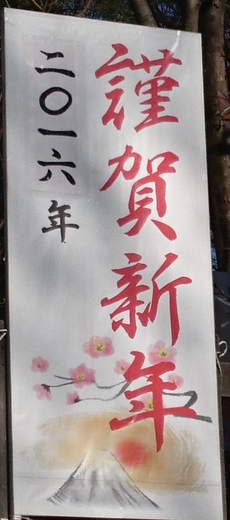 謹賀新年
二〇一六年